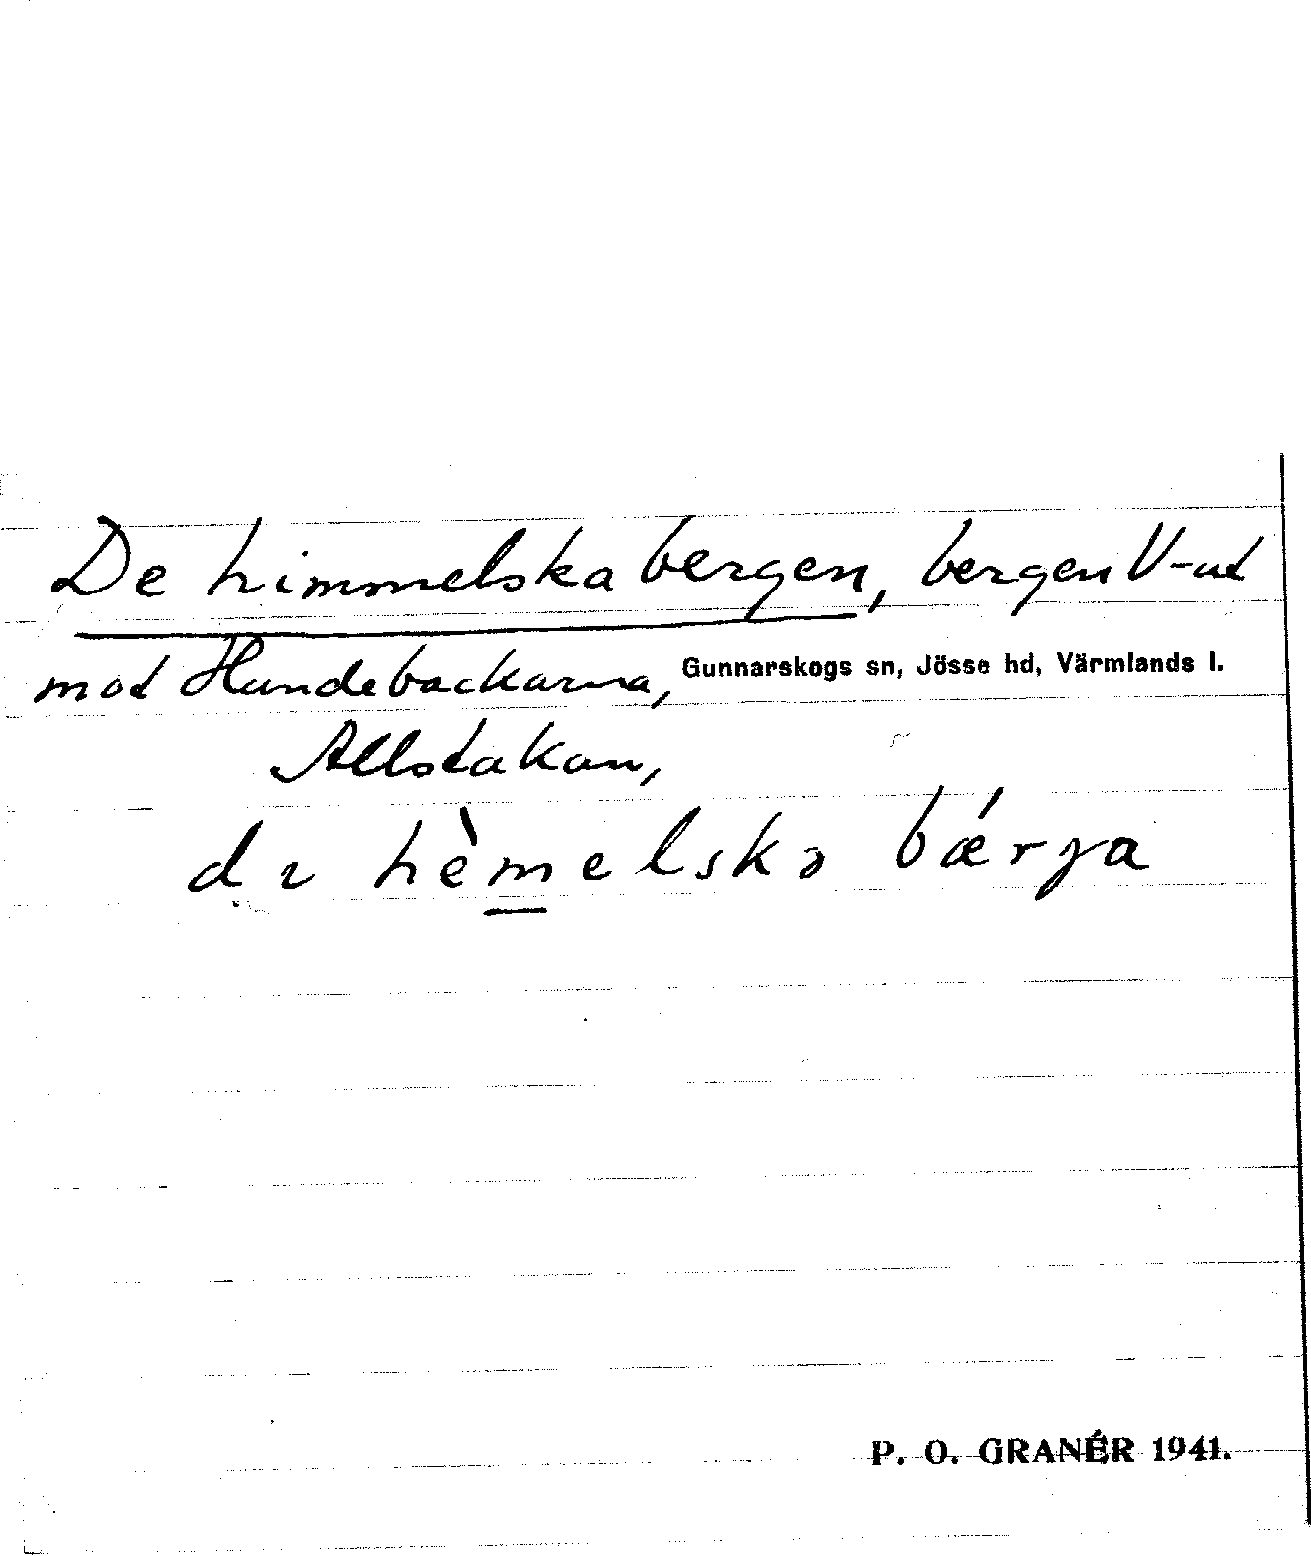 De himmelska bergen, bergen V-ut
mot Hundebackarna, Gunnarskogs sn, Jösse hd, Värmlands l.
Allstakan,
dı hèmelskə bǽrja
P. O. GRANÉR 1941.